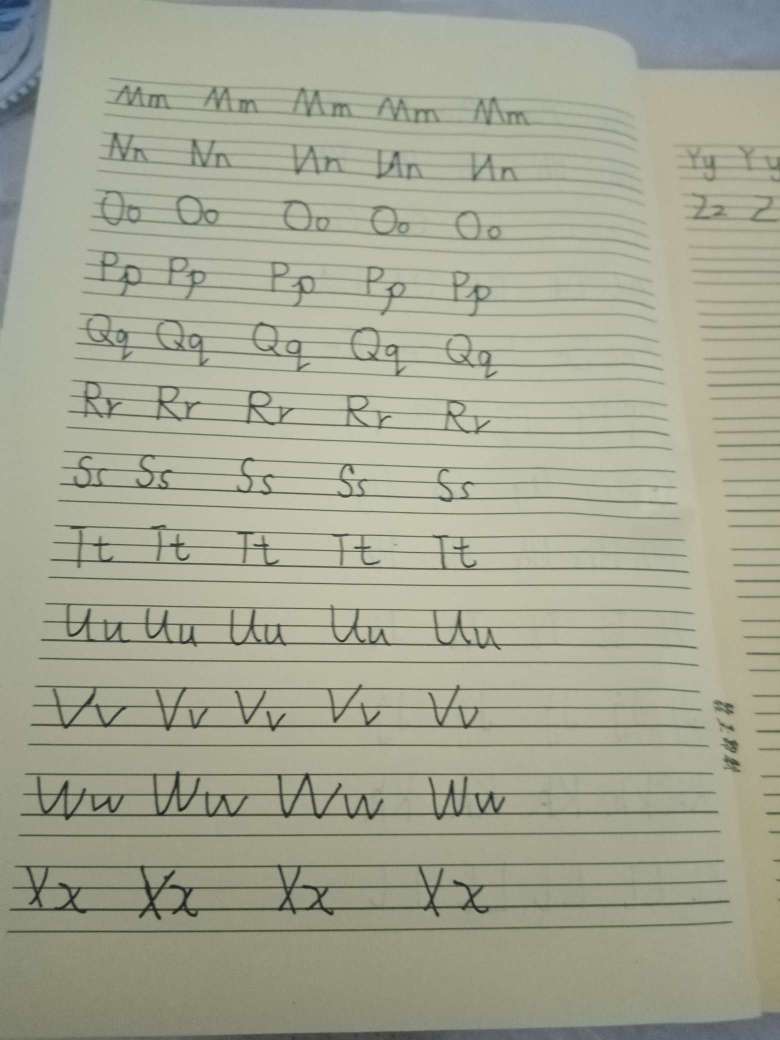 Mm Mm Mm Mm Mm
Nn Nn Nn Nn Nn
Oo Oo Oo Oo Oo
Pp Pp Pp Pp Pp
Qq Qq Qq Qq Qq
Rr Rr Rr Rr Rr
Ss Ss Ss Ss Ss
Tt Tt Tt Tt Tt
Uu Uu Uu Uu Uu
Vv Vv Vv Vv Vv
Ww Ww Ww Ww
Xx Xx Xx Xx
Yy Yy
Zz Z